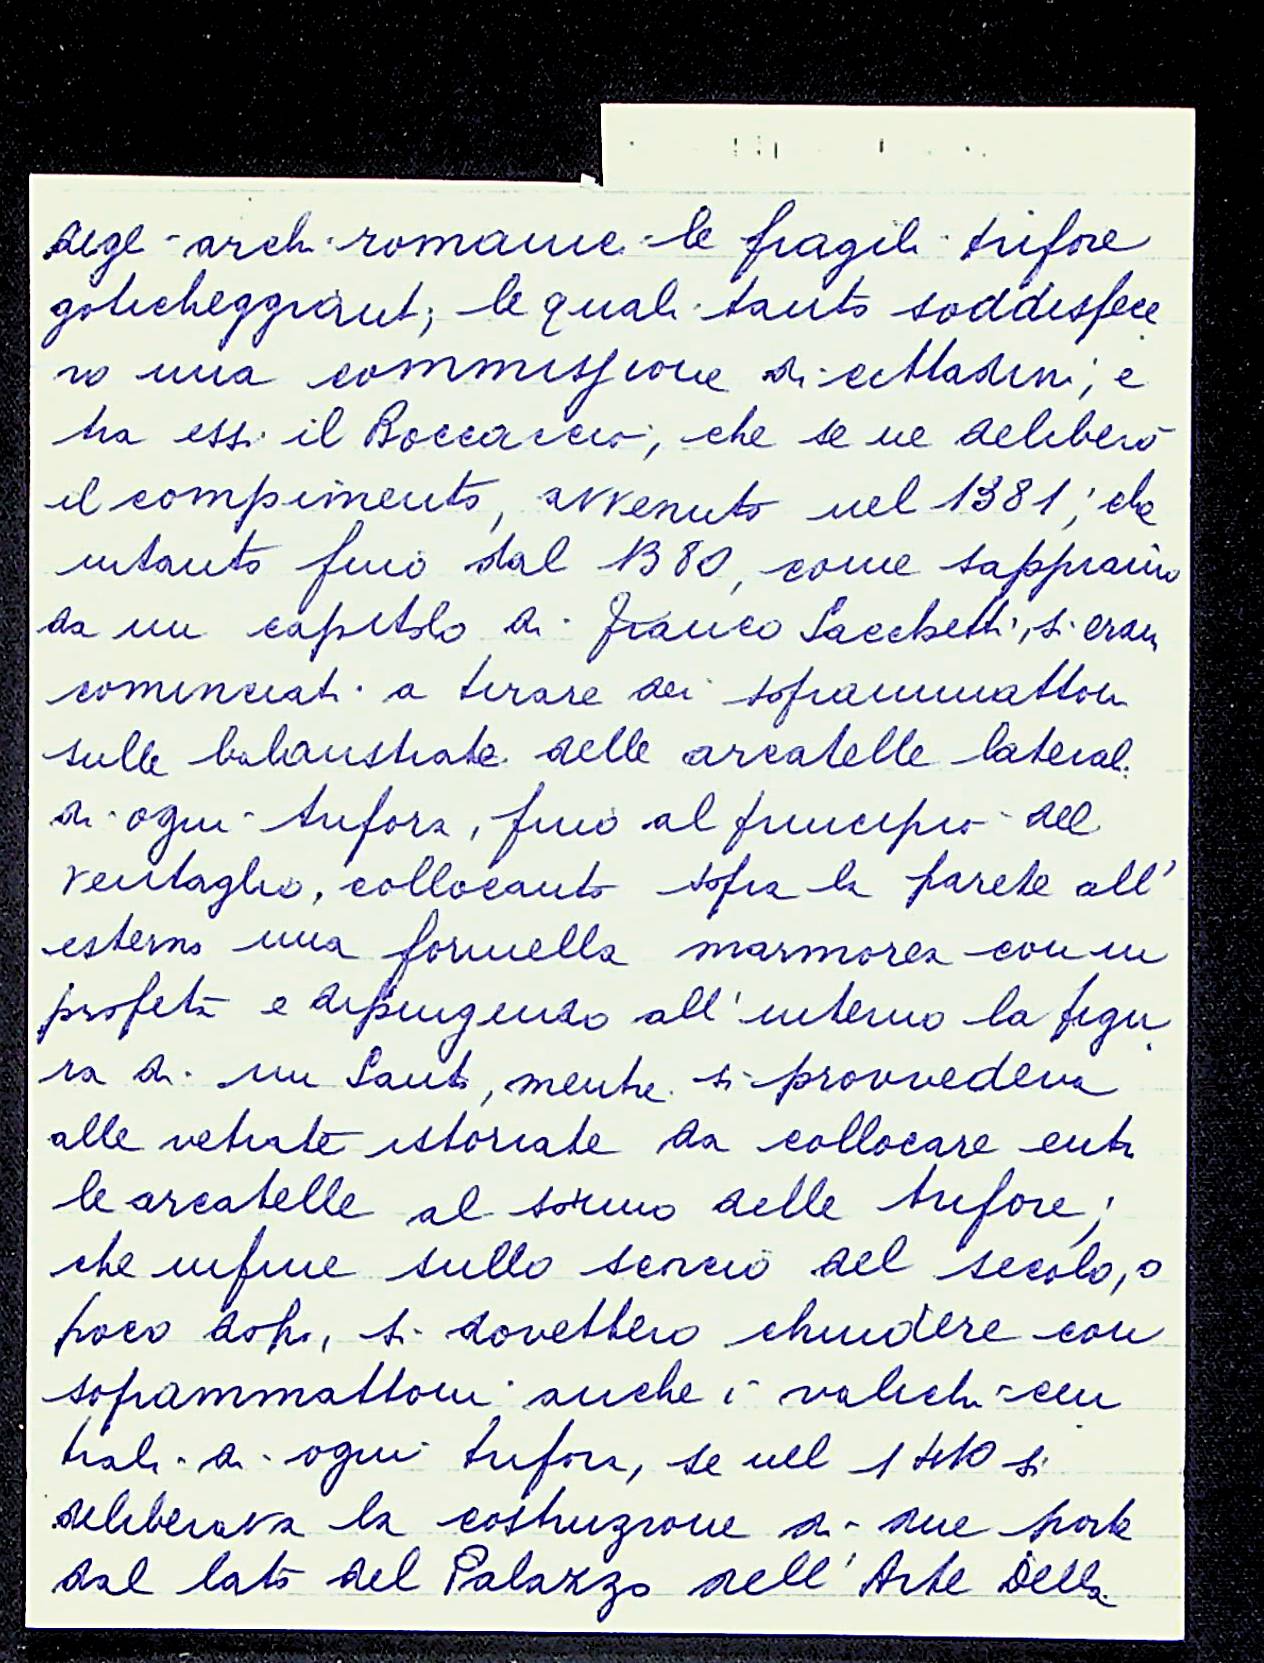 degl archi romanici le fragili trifore
goticheggianti; le quali tanto soddisfece
ro una commissione di cittadini, e
tra essi il Boccaccio, che se ne deliberò
il compimento, avvenuto nel 1381; che
intanto fino dal 1380, come sappiamo
da un capitolo di Franco Sacchetti, si eran
cominciati a tirare dei soprammattoni
sulle balaustrate delle arcatelle laterali
di ogni trifora, fino al principio del
ventaglio, collocanto sopra la parete all'
esterno una formella marmorea con un
profeta e dipingendo all'interno la figu
ra di un Santo, mentre si provvedeva
alle vetrate istoriate da collocare entro
le arcatelle al sommo delle trifore;
che infine sullo scorcio del secolo, o
poco dopo, si dovettero chiudere con
soprammattoni anche i valichi cen
trali di ogni trifora, se nel 1410 si
deliberava la costruzione di due porte
dal lato del Palazzo dell'Arte Della